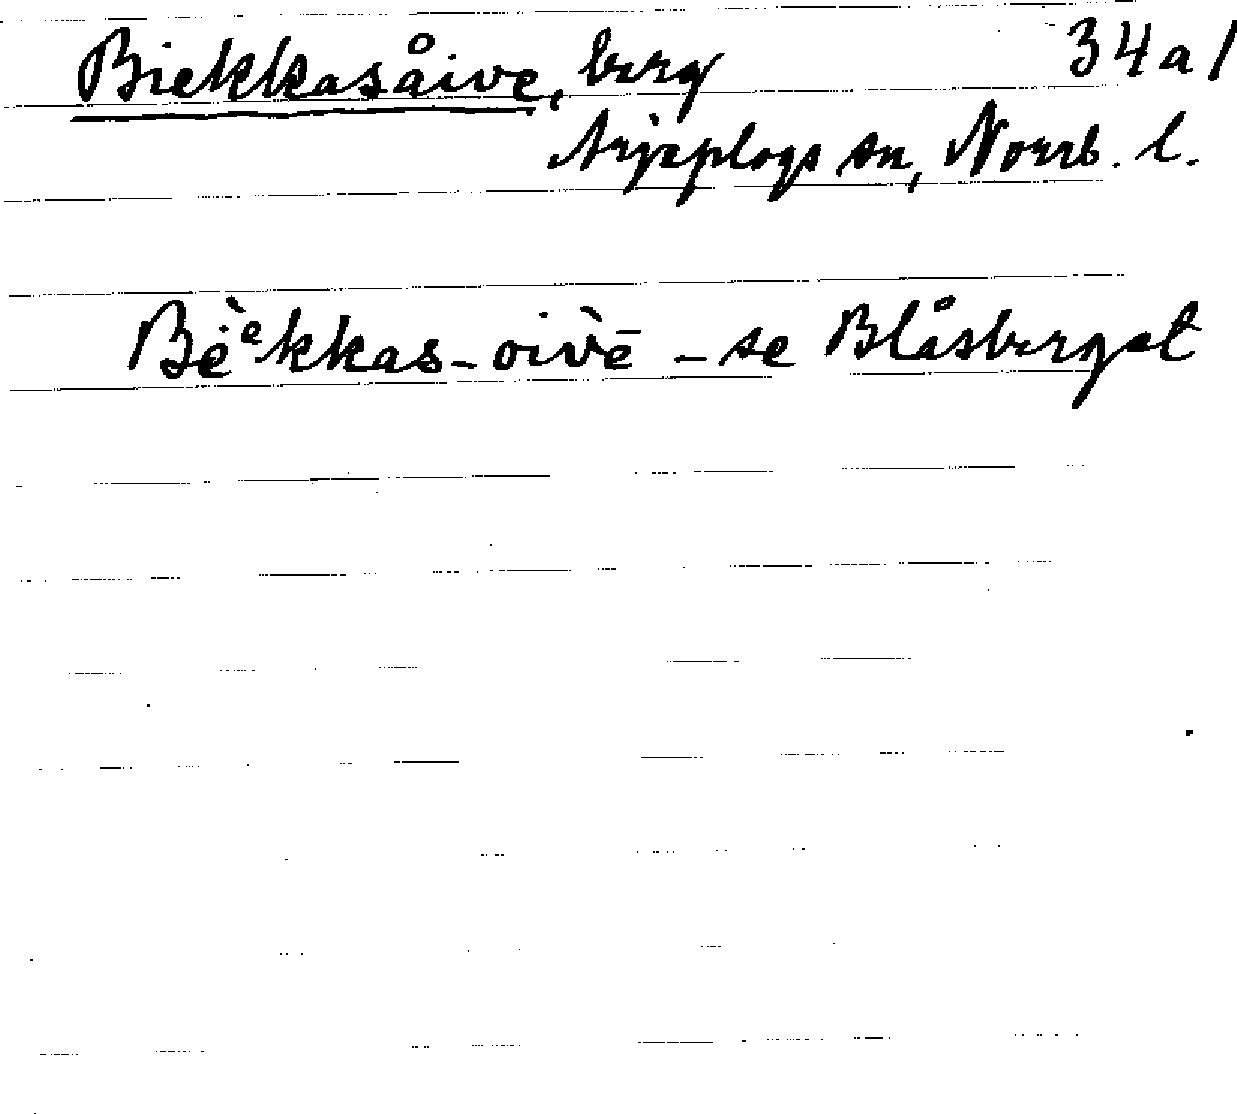 Biekkasåive, berg 34a1
Arjeplogs sn, Norrb. l.
Bė̀ᵉkkas-oivè̄ - se Blåsberget